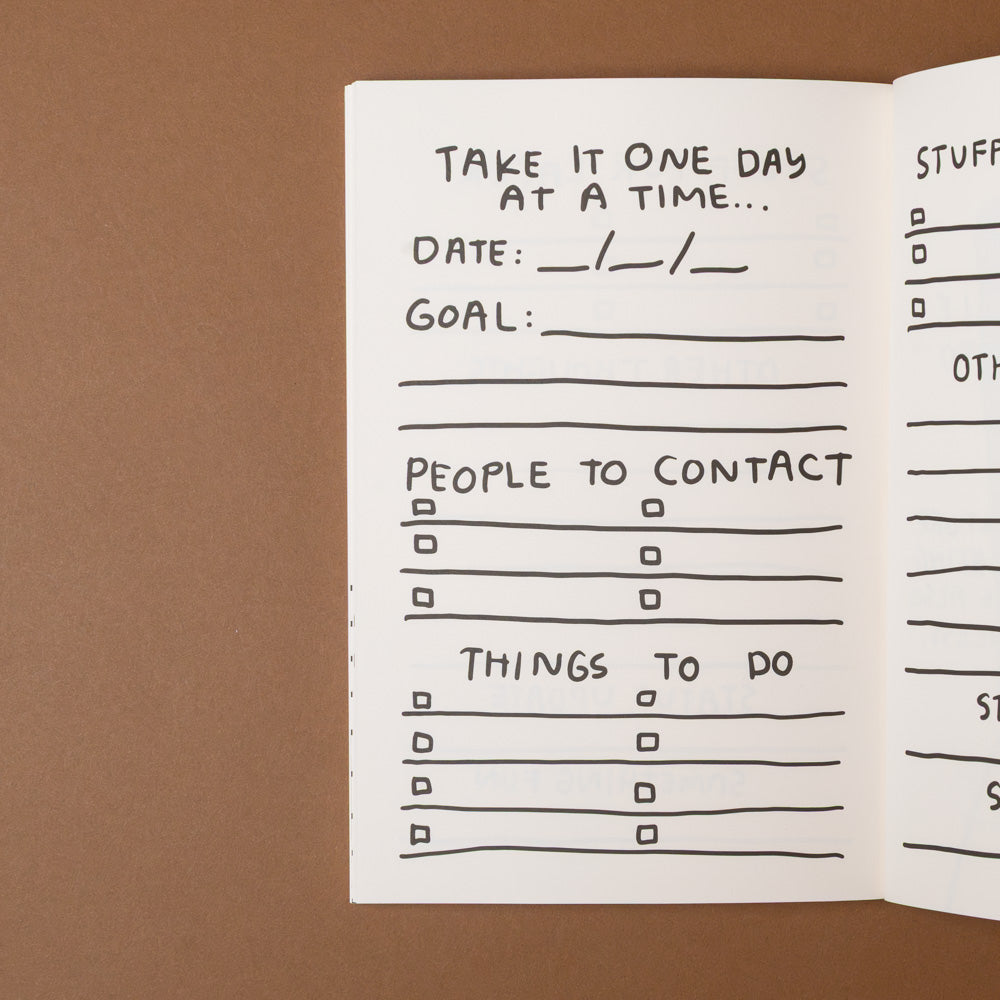 TAKE IT ONE DAY
AT A TIME...
DATE: __/__/__
GOAL:
PEOPLE TO CONTACT
THINGS TO DO
STUFF